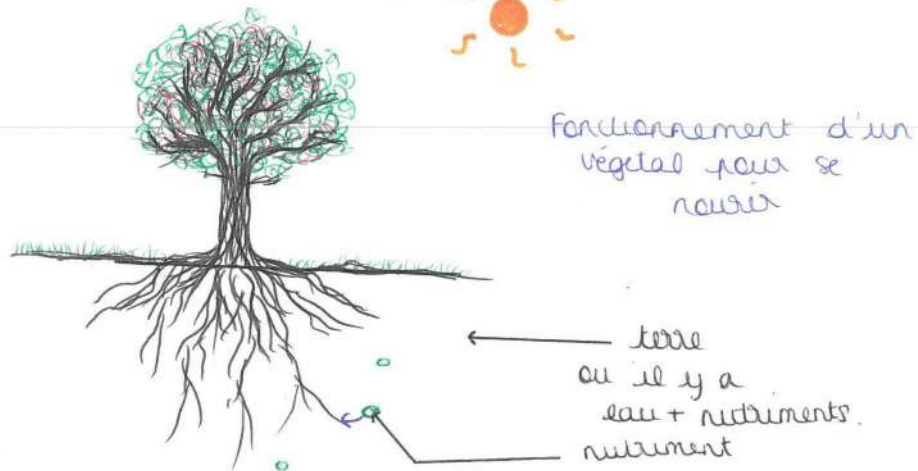 Fonctionnement d'un
végetal pour se
nourir
terre
ou il y a
eau + nutriments.
nutriment